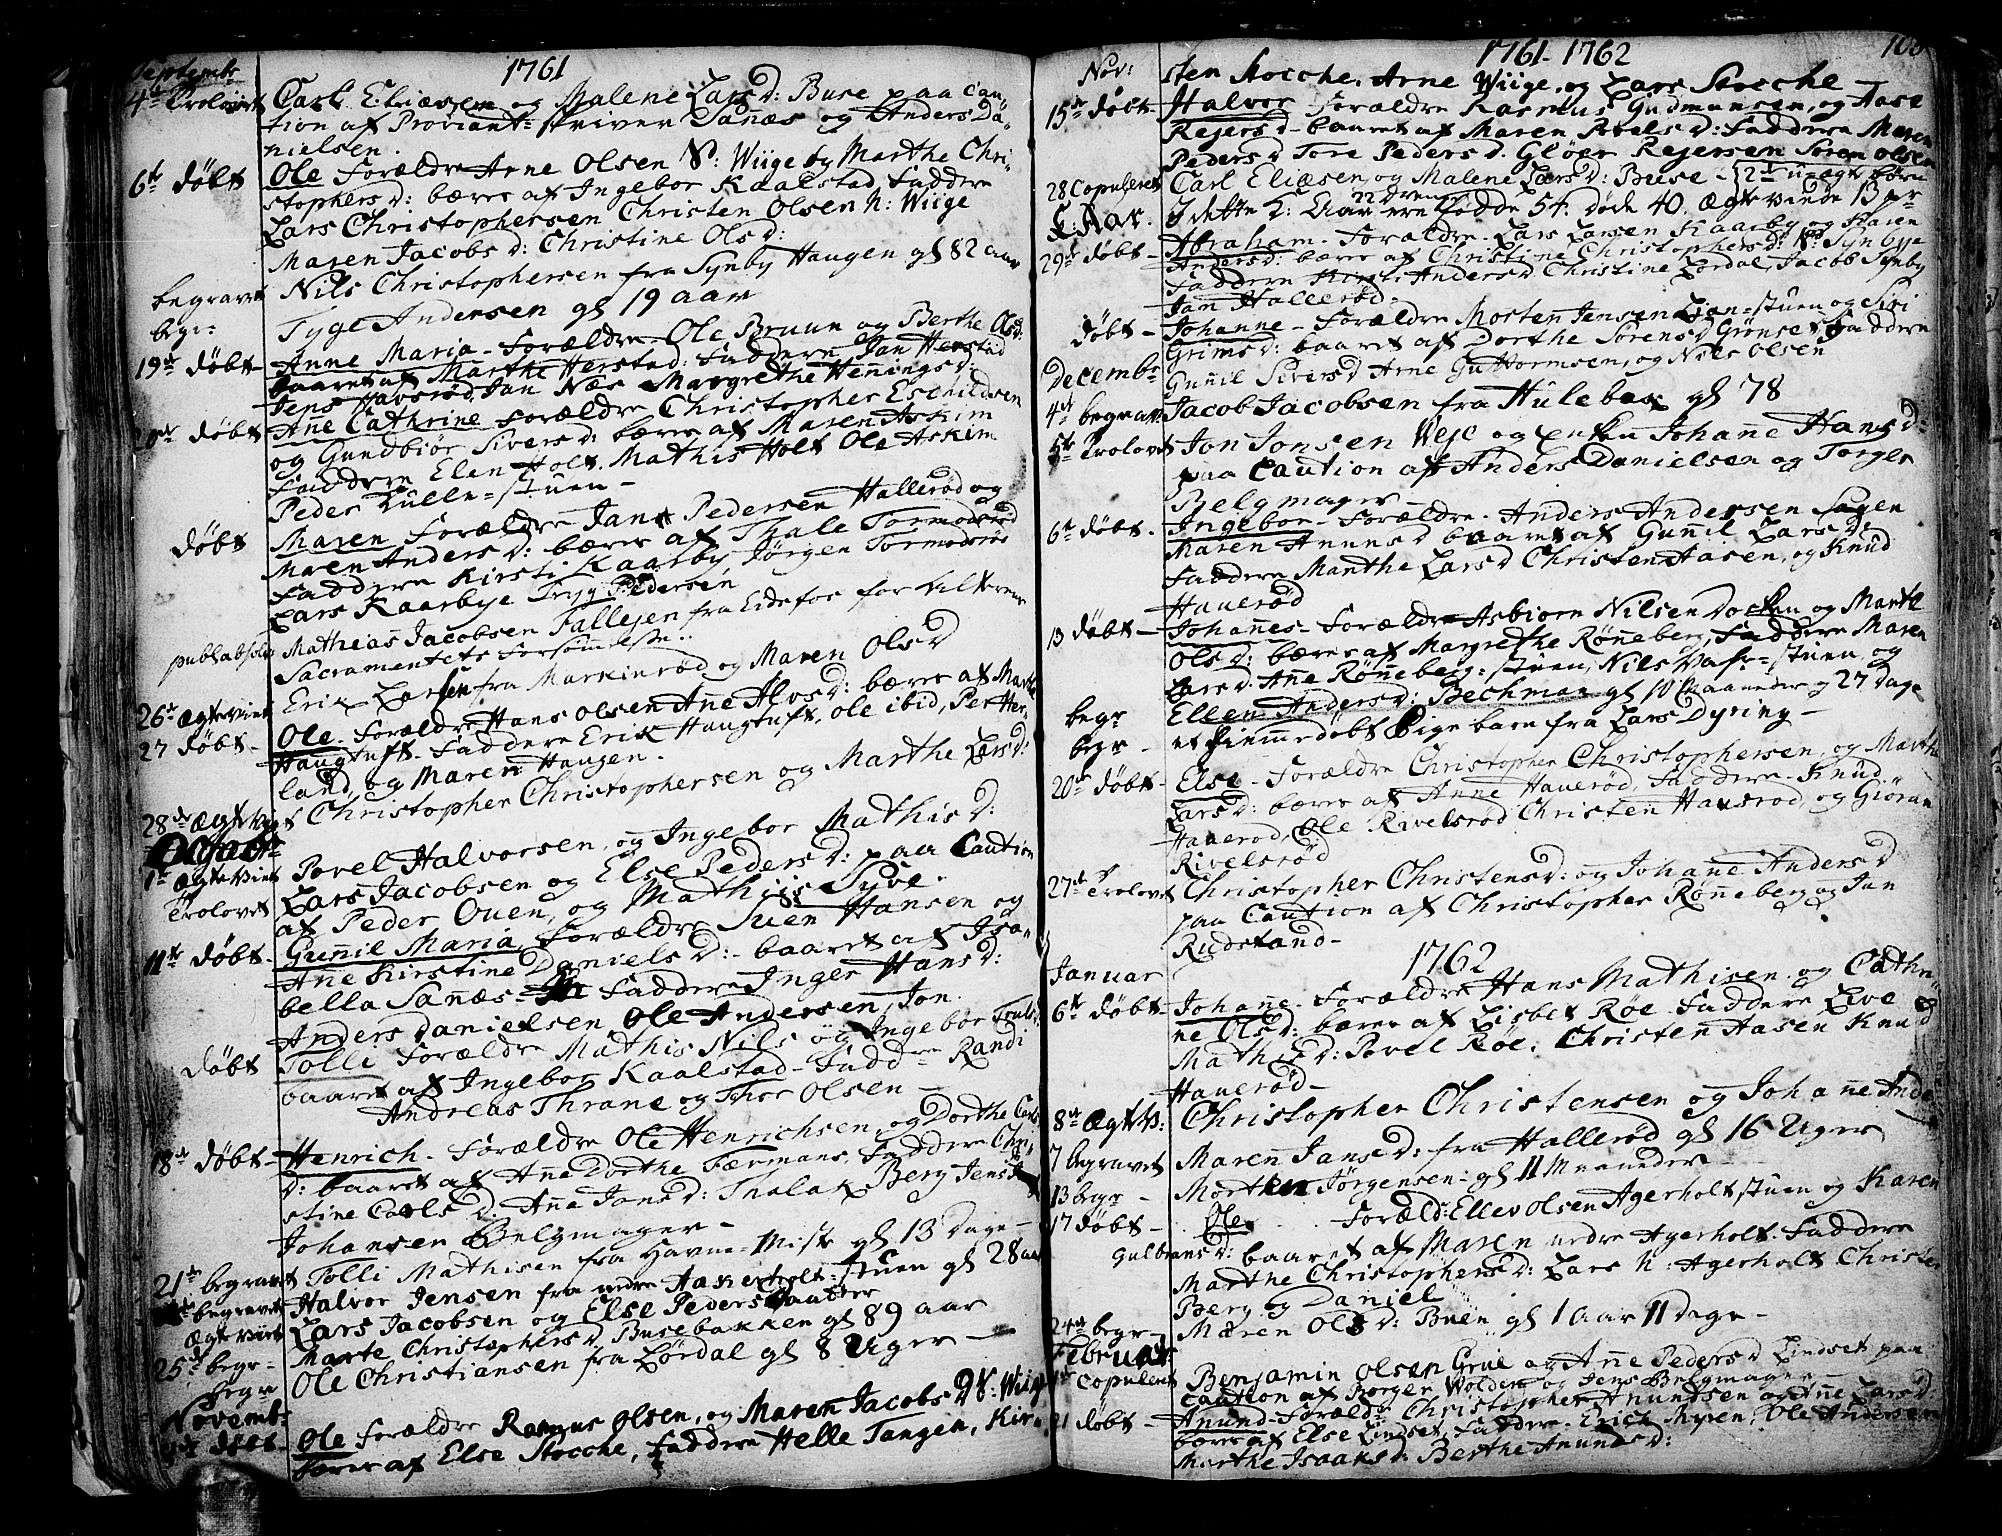 Septembr 1761
4de Trolovet Carl Eliæsen og Malene Larsd: Buse paa Cau-
tion af Proviant-skriver Sanæs og Anders Da-
nielsen.
6te døbt Ole Forældre Arne Olsen N: Wiige og Marthe Chri-
stophersd: bærer af Ingebor Kaalstad Faddere
Lars Christophersen Christen Olsen N: Wiige
Maren Jacobsd: Christine Olsd:
begravet Nils Christophersen fra Synby Haugen gl 82 aar
begr- Tyge Andersen gl 19 aar
19de døbt- Anne Maria- Forældre Ole Bruun og Berthe Olsd:
baaret af Marthe Herstad: Faddere Jan Herstad
Jens Havsrød, Jan Næs Margrethe Henningsd:
20de døbt Ane Cathrine Forældre Christopher Eschildsen
og Gundbiør Siversd: bærer af Maren Askim
Faddere Elen Holt. Mathis Holt Ole Askim
Peder Lulle=stuen-
døbt Maren Forældre Jan Pedersen Hallerød og
Maren Andersd: bærer af Thale Tormodsrød
Faddere Kirsti Kaarby, Jørgen Tormodsrød
Lars Kaarbye Tryg Pedersen
publ: absol: Mathias Jacobsen Fallesen fra Eidefos for
Sacramentets Forsømmelse.
26de Ægteviet Erik Larsen fra Markinrød og Maren Olsd
27 døbt- Ole- Forældre Hans Olsen Ane Alvsd: bærer af Marthe
Haugtuft. Faddere Erik Haugtuft, Ole ibid, Per Her-
land, og Maren Haugen.
28de Ægteviet Christopher Christophersen og Marthe Larsd:
Octobr
1te Ægteviet Povel Halvorsen, og Ingebor Mathisd:
Trolovet Lars Jacobsen og Else Pedersd: paa Caution
af Peder Ouen, og Mathis Syve.
11te døbt- Gunnil Maria Forældre Suen Hansen og
Ane Kirstine Danielsd:- baaret af Isa-
bella Sanæs- Faddere Inger Hansd:
Anders Danielsen, Ole Andersen, Jon
døbt Tolli Forældre Mathis Nils og Ingebor
baaret af Ingebor Kaalstad- Fadd- Randi
Andreas Thrane og Thor Olsen-
18de døbt- Henrich- Forældre Ole Henrichsen, og Dorthe Carls
d: baaret af Ane Dorthe Færmans, Faddere Chri-
stine Carlsd. Ana Jansd: Thalak Berg Jens
Johansen Belgmager-
21de begravet Tolli Mathisen fra Havne-Mist gl 13 Dage-
begravet Halvor Jensen fra nedre Haverholt-stuen gl 28 aar
Ægteviet Lars Jacobsen og Else Pedersdaatter
25de begr- Marte Christophersd Busebakken gl 89 aar
begr Ole Christiansen fra Lørdal gl 8 Uger-
Novemb:
døbt- Ole Forældre Rasmus Olsen, og Maren Jacobsd N: Wiige
bærer af Else Stocche, Faddere Helle Tangen, Kir-
1761-1762
Nov: sten Stocche. Arne Wiige, og Lars Stocche-
15de døbt- Halvor Forældre Rasmus Gudmunsen, og Aase
Rejersd- baaret af Maren Povelsd: Faddere Maren
Pedersd Tore Pedersd. Gløer Rejersen Søren Olsen
28 Copuleret Carl Eliæsen og Malene Larsd: Buse- 2de u-ægte børn
K: Aar. I dette K: Aar ere fødde 54. døde 40. ægteviede 13 pr
29de døbt- Abraham- Forældre Lars Larsen Kaarby og Karen
Andersd: bærer af Christine Christophersd: Synbye
Faddere Kirsti Andersd Christine Lørdal, Jacob Synby
Jan Hallerød-
døbt- Johanne- Forældre Morten Jensen Lien-stuen og Siri
Grimsd: baaret af Dorthe Sørensd Grønset Faddere
Gunnil Siversd Arne Guttormsen, og Nils Olsen
Decembr
4de begravet Jacob Jacobsen fra Hulebak gl 78
5te Trolovet Jon Jonsen Weje og enken Johane Hansd:
paa Caution af Anders Danielsen og Torger
Belgmager-
6te døbt. Ingebor- Forældre. Anders Andersen Sagen
Maren Anunsd baaret af Gunnil Larsd:
Faddere Marthe Larsd Christen Aasen, og Knud
Hauerød
13 døbt- Johannes- Forældre Asbiørn Nilsen Docken og Marte
Olsd: bærer af Margrethe Røneberg Faddere Maren
Larsd. Ane Røneberg-stuen, Nils Vafr-stuen, og
begr Ellen Andersd: Bechman gl 10 Maaneder og 27 Dage
begr- et hiemmedøbt Pige barn fra Lars Dyring-
20de døbt- Else- Forældre Christopher Christophersen, og Marthe
Larsd: bærer af Anne Hauerød, Faddere- Knud
Hauerød, Ole Rivelsrød Christen Havsrød, og Giøran
Rivelsrød
27de Trolovet Christopher Christensd: og Johane Andersd
paa Caution af Christopher Røneberg og Jan
Rudstand-
1762
Januar
6te døbt- Johane- Forældre Hans Mathisen og Cathri-
ne Olsd: bærer af Lisbet Røe- Faddere Live
Mathisd: Povel Røe. Christen Aasen Knud
Hauerød-
8de Ægtv: Christopher Christensen og Johane Andersd
7 begravet Maren Jansd: fra Hallerød gl 16 Uger
13 begr- Morthen Jørgensen- gl 11 Maaneder-
17 døbt- Ole Foræld: Ellev Olsen Agerholt stuen og Karen
Gulbransd: baaret af Maren nedre Agerholt. Faddere
Marthe Christophersd: Lars N: Agerholt Christen
Berg og Daniel
24de begr- Maren Olsd: Buen gl 1 Aar 11 Dage-
Februar:
Copuleret Benjamin Olsen Grue og Ane Pedersd Lindset paa
Caution af Borger Wolden og Jens Belgmager-
21 døbt- Anund- Forældre Christopher Anundsen og Ane Larsd:
bærer af Else Lindset, Faddere Erich Myren, Ole Andersen
Marthe Isaaksd: Berthe Anundsd: